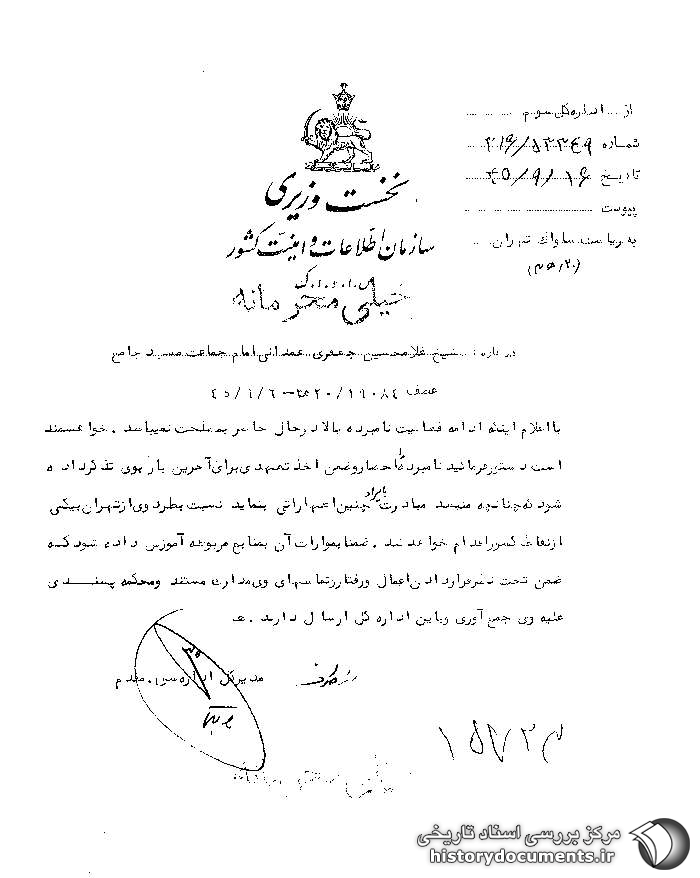 از ... اداره کل سوم
شماره ۳۱۶/۵۳۳۴۹
تاریخ ۴۵/۹/۱۶
پیوست
به ریاست ساواک تهران
(۲۰ ه‍ ۳)
نخست وزیری
سازمان اطلاعات و امنیت کشور
س.ا.و.ا.ک
خیلی محرمانه
درباره : شیخ غلامحسین جعفری همدانی امام جماعت مسجد جامع
عطف ۱۹۰۸۴/۲۰ ه‍ ۳ – ۴۵/۹/۶
با اعلام اینکه ادامه فعالیت نامبرده بالا در حال حاضر بمصلحت نمیباشد . خواهشمند
است دستور فرمائید نامبرده را احضار و ضمن اخذ تعهدی برای آخرین بار بوی تذکر داده
شود که چنانچه مجدد مبادرت بایراد چنین اظهاراتی بنماید نسبت بطرد وی از تهران بیکی
از نقاط کشور اقدام خواهد شد . ضمنا بموازات آن بمنابع مربوطه آموزش داده شود که
ضمن تحت نظر قرار دادن اعمال و رفتار و تماسهای وی مدارک مستند و محکمه پسندی
علیه وی جمع آوری و باین اداره کل ارسال دارند . ه‍
مدیرکل اداره سوم . مقدم
از طرف
۱۵۷۲۳
مرکز بررسی اسناد تاریخی
historydocuments.ir